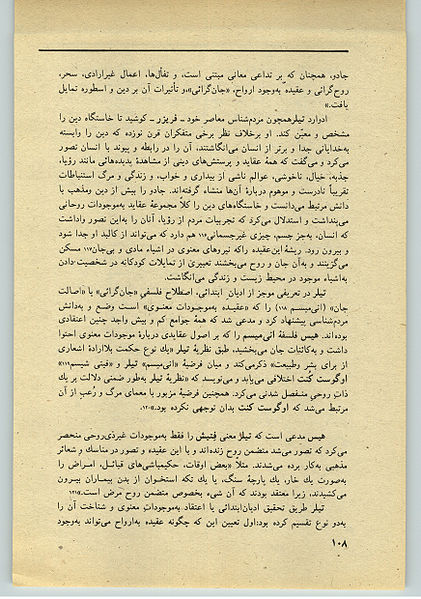 جادو، همچنان که بر تداعی معانی مبتنی است، و تفأل‌ها، اعمال غیرارادی، سحر،
روح‌گرائی و عقیده به‌وجود ارواح، «جان‌گرائی»، و تأثیرات آن بر دین و اسطوره تمایل
یافت.»
ادوارد تیلر همچون مردم‌شناس معاصر خود ـ فریزر ـ کوشید تا خاستگاه دین را
مشخص و معیّن کند. او برخلاف نظر برخی متفکران قرن نوزده که دین را وابسته
به‌خدایانی جدا و برتر از انسان می‌انگاشتند، آن را در رابطه و پیوند با انسان تصور
می‌کرد و می‌گفت که همهٔ عقاید و پرستش‌های دینی از مشاهدهٔ پدیده‌هائی مانند رؤیا،
جذبه، خیال، ناخوشی، عوالم ناشی از بیداری و خواب، و زندگی و مرگ استنباطات
تقریباً نادرست و موهوم دربارهٔ آن‌ها منشاء گرفته‌اند. جادو را بیش از دین ومذهب با
دانش مرتبط می‌دانست و خاستگاه‌های دین را کلاً مجموعهٔ عقاید به‌موجودات روحانی
می‌پنداشت و استدلال می‌کرد که تجربیات مردم از رؤیا، آنان را به‌این تصور واداشت
که انسان، به‌جز جسم، چیزی غیرجسمانی۱۱۶ هم دارد که می‌تواند از کالبد او جدا شود
و بیرون رود. ریشهٔ این‌عقیده راکه نیروهای معنوی در اشیاء مادی و بی‌جان۱۱۷ مسکن
می‌گزینند و به‌آن جان و روح می‌بخشند تعبیری از تمایلات کودکانه در شخصیت‌دادن
به‌اشیاء موجود در محیط زیست و زندگی می‌انگاشت.
تیلر در تعریفی موجز از ادیان ابتدائی، اصطلاح فلسفی «جان‌گرائی» یا «اصالت
جان» (انی‌میسم ۱۱۸) را که «عقیـده به‌موجـودات معنـوی» اسـت وضـع و به‌دانش
مردم‌شناسی پیشنهاد کرد و مدعی شد که همهٔ جوامع کم و بیش واجد چنین اعتقادی
بوده‌اند. هیس فلسفهٔ انی‌میسم را که بر اصول عقایدی دربارهٔ موجودات معنوی احتوا
داشت و به‌کائنات جان می‌بخشید، طبق نظریهٔ تیلر «یك نوع حکمت بلاارادهٔ اشعاری
از برای بشر وطبیعت» ذکرمی‌کند و میان فرضیهٔ «انی‌میسم» تیلر و «فیتی شیسم۱۱۹»
اوگوست کُنت اختلافی می‌یابد و می‌نویسد که «نظریهٔ تیلر به‌طور ضمنی دلالت بر یك
ذات روحیِ منفصل شدنی می‌کرد. همچنین فرضیهٔ مزبور با معمای مرگ و رُعب از آن
مرتبط می‌شد که اوگوست کنت بدان توجهی نکرده بود.»۱۲۰
هیس مدعی است که تیلر معنی فِتیش را فقط به‌موجودات غیرذی‌روحی منحصر
می‌کرد که تصور می‌شد متضمن روح زنده‌اند و با این عقیده و تصور در مناسك و شعائر
مذهبی به‌کار برده می‌شدند. مثلاً «بعض اوقات، حکیمباشی‌های قبائـل، امـراض را
به‌صورت یك خار، یك پارچهٔ سنگ، یا یك تکه استخـوان از بدن بیمـاران بیـرون
می‌کشیدند، زیرا معتقد بودند که آن شیء بخصوص متضمن روح مرض است.»۱۲۱
تیلر طریق تحقیق ادیان‌ابتدائی یا اعتقاد به‌موجودات معنوی و شناخت آن را
به‌دو نوع تقسیم کرده بود: اول تعیین این که چگونه عقیده به‌ارواح می‌تواند به‌وجود
۱۰۸